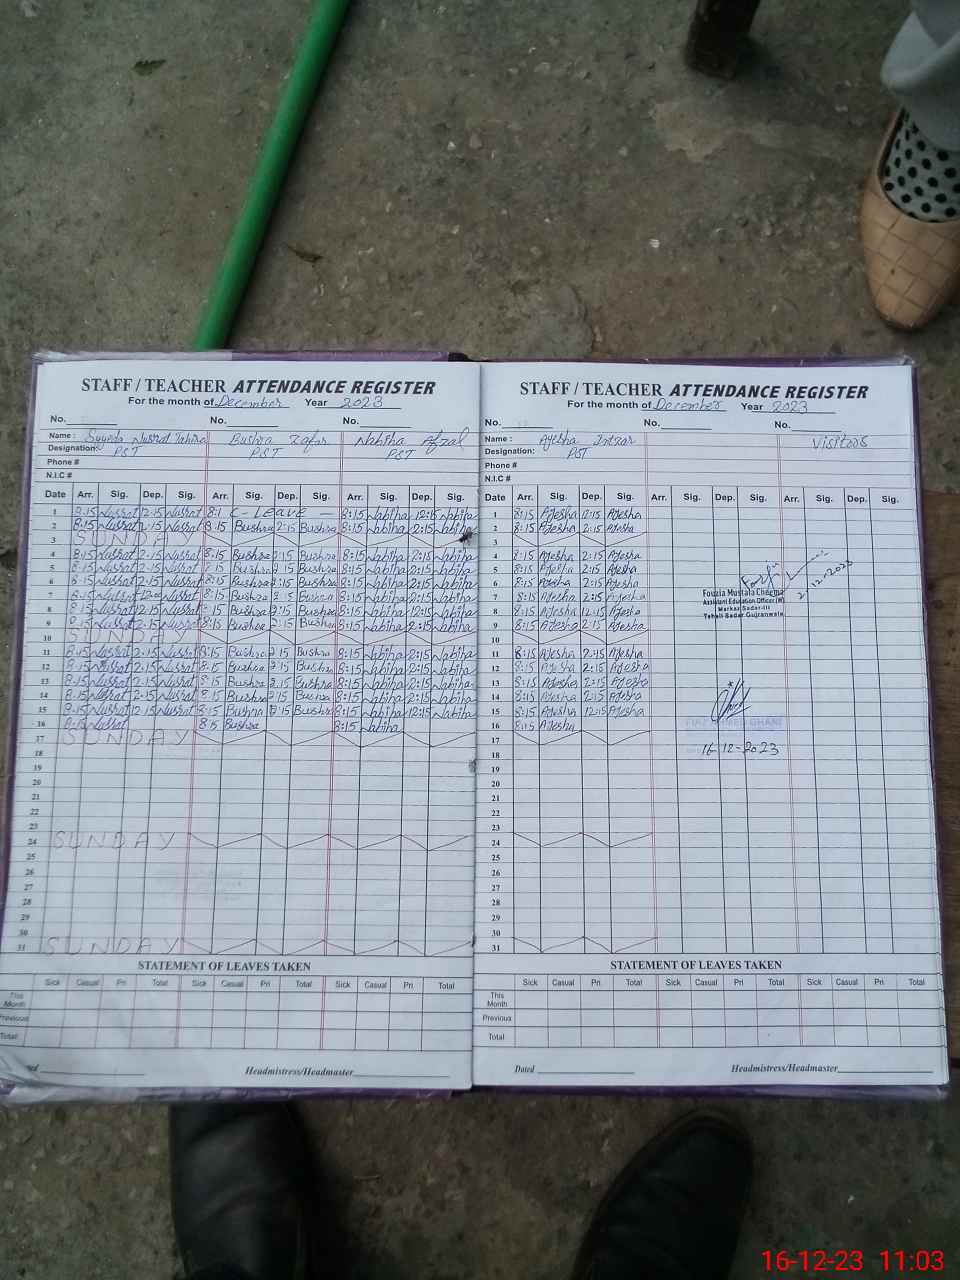 STAFF / TEACHER ATTENDANCE REGISTER
For the month of December Year 2023
No. No. No.
Name : Syyeda Nusrat Tahira Bushra Zafar Nabiha Afzal
Designation: PST PST PST
Phone #
N.I.C #
Date Arr. Sig. Dep. Sig. Arr. Sig. Dep. Sig. Arr. Sig. Dep. Sig.
1 8:15 Nusrat 12:15 Nusrat C-Leave 8:15 Nabiha 12:15 Nabiha
2 8:15 Nusrat 2:15 Nusrat 8:15 Bushra 2:15 Bushra 8:15 Nabiha 2:15 Nabiha
3 SUNDAY
4 8:15 Nusrat 2:15 Nusrat 8:15 Bushra 2:15 Bushra 8:15 Nabiha 2:15 Nabiha
5 8:15 Nusrat 2:15 Nusrat 8:15 Bushra 2:15 Bushra 8:15 Nabiha 2:15 Nabiha
6 8:15 Nusrat 2:15 Nusrat 8:15 Bushra 2:15 Bushra 8:15 Nabiha 2:15 Nabiha
7 8:15 Nusrat Nusrat 8:15 Bushra 2:15 Bushra 8:15 Nabiha 2:15 Nabiha
8 8:15 Nusrat 12:15 Nusrat 8:15 Bushra Bushra 8:15 Nabiha 12:15 Nabiha
9 8:15 Nusrat 2:15 Nusrat 8:15 Bushra 2:15 Bushra 8:15 Nabiha 2:15 Nabiha
10 SUNDAY
11 8:15 Nusrat 2:15 Nusrat 8:15 Bushra 2:15 Bushra 8:15 Nabiha 2:15 Nabiha
12 8:15 Nusrat 2:15 Nusrat 8:15 Bushra 2:15 Bushra 8:15 Nabiha 2:15 Nabiha
13 8:15 Nusrat 2:15 Nusrat 8:15 Bushra 2:15 Bushra 8:15 Nabiha 2:15 Nabiha
14 8:15 Nusrat 2:15 Nusrat 8:15 Bushra 2:15 Bushra 8:15 Nabiha 2:15 Nabiha
15 8:15 Nusrat 12:15 Nusrat 8:15 Bushra Bushra 8:15 Nabiha 12:15 Nabiha
16 8:15 Nusrat 8:15 Bushra 8:15 Nabiha
17 SUNDAY
18
19
20
21
22
23
24 SUNDAY
25
26
27
28
29
30
31 SUNDAY
STATEMENT OF LEAVES TAKEN
Sick Casual Pri Total Sick Casual Pri Total Sick Casual Pri Total
This Month
Previous
Total:
Headmistress/Headmaster
STAFF / TEACHER ATTENDANCE REGISTER
For the month of December Year 2023
No. No. No.
Name : Ayesha Intzar Visitors
Designation: PST
Phone #
N.I.C #
Date Arr. Sig. Dep. Sig. Arr. Sig. Dep. Sig. Arr. Sig. Dep. Sig.
1 8:15 Ayesha 12:15 Ayesha
2 8:15 Ayesha 2:15 Ayesha
3
4 8:15 Ayesha 2:15 Ayesha
5 8:15 Ayesha 2:15 Ayesha
6 8:15 Ayesha 2:15 Ayesha
7 8:15 Ayesha 2:15 Ayesha
8 8:15 Ayesha 12:15 Ayesha
9 8:15 Ayesha 2:15 Ayesha
10
11 8:15 Ayesha 2:15 Ayesha
12 8:15 Ayesha 2:15 Ayesha
13 8:15 Ayesha 2:15 Ayesha
14 8:15 Ayesha 2:15 Ayesha
15 8:15 Ayesha 12:15 Ayesha
16 8:15 Ayesha
17
18
19
20
21
22
23
24
25
26
27
28
29
30
31
Fouzia Mustafa Cheema
Assistant Education Officer (W)
Markaz Sadar-III
Tehsil Sadar Gujranwala
16-12-2023
STATEMENT OF LEAVES TAKEN
Sick Casual Pri Total Sick Casual Pri Total Sick Casual Pri Total
This Month
Previous
Total:
Dated Headmistress/Headmaster
16-12-23 11:03